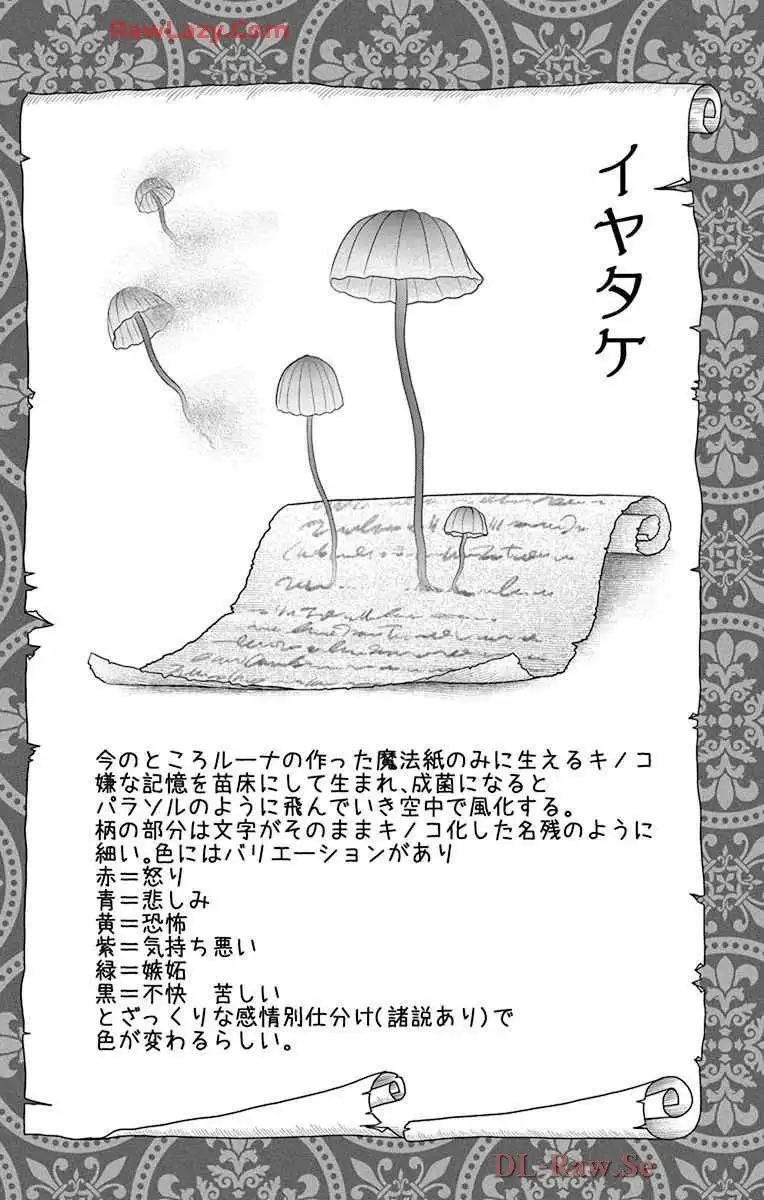 RawLazy.Com
イヤタケ
今のところルーナの作った魔法紙のみに生えるキノコ
嫌な記憶を苗床にして生まれ、成菌になると
パラソルのように飛んでいき空中で風化する。
柄の部分は文字がそのままキノコ化した名残のように
細い。色にはバリエーションがあり
赤＝怒り
青＝悲しみ
黄＝恐怖
紫＝気持ち悪い
緑＝嫉妬
黒＝不快　苦しい
とざっくりな感情別仕分け(諸説あり)で
色が変わるらしい。
DL-Raw.Se